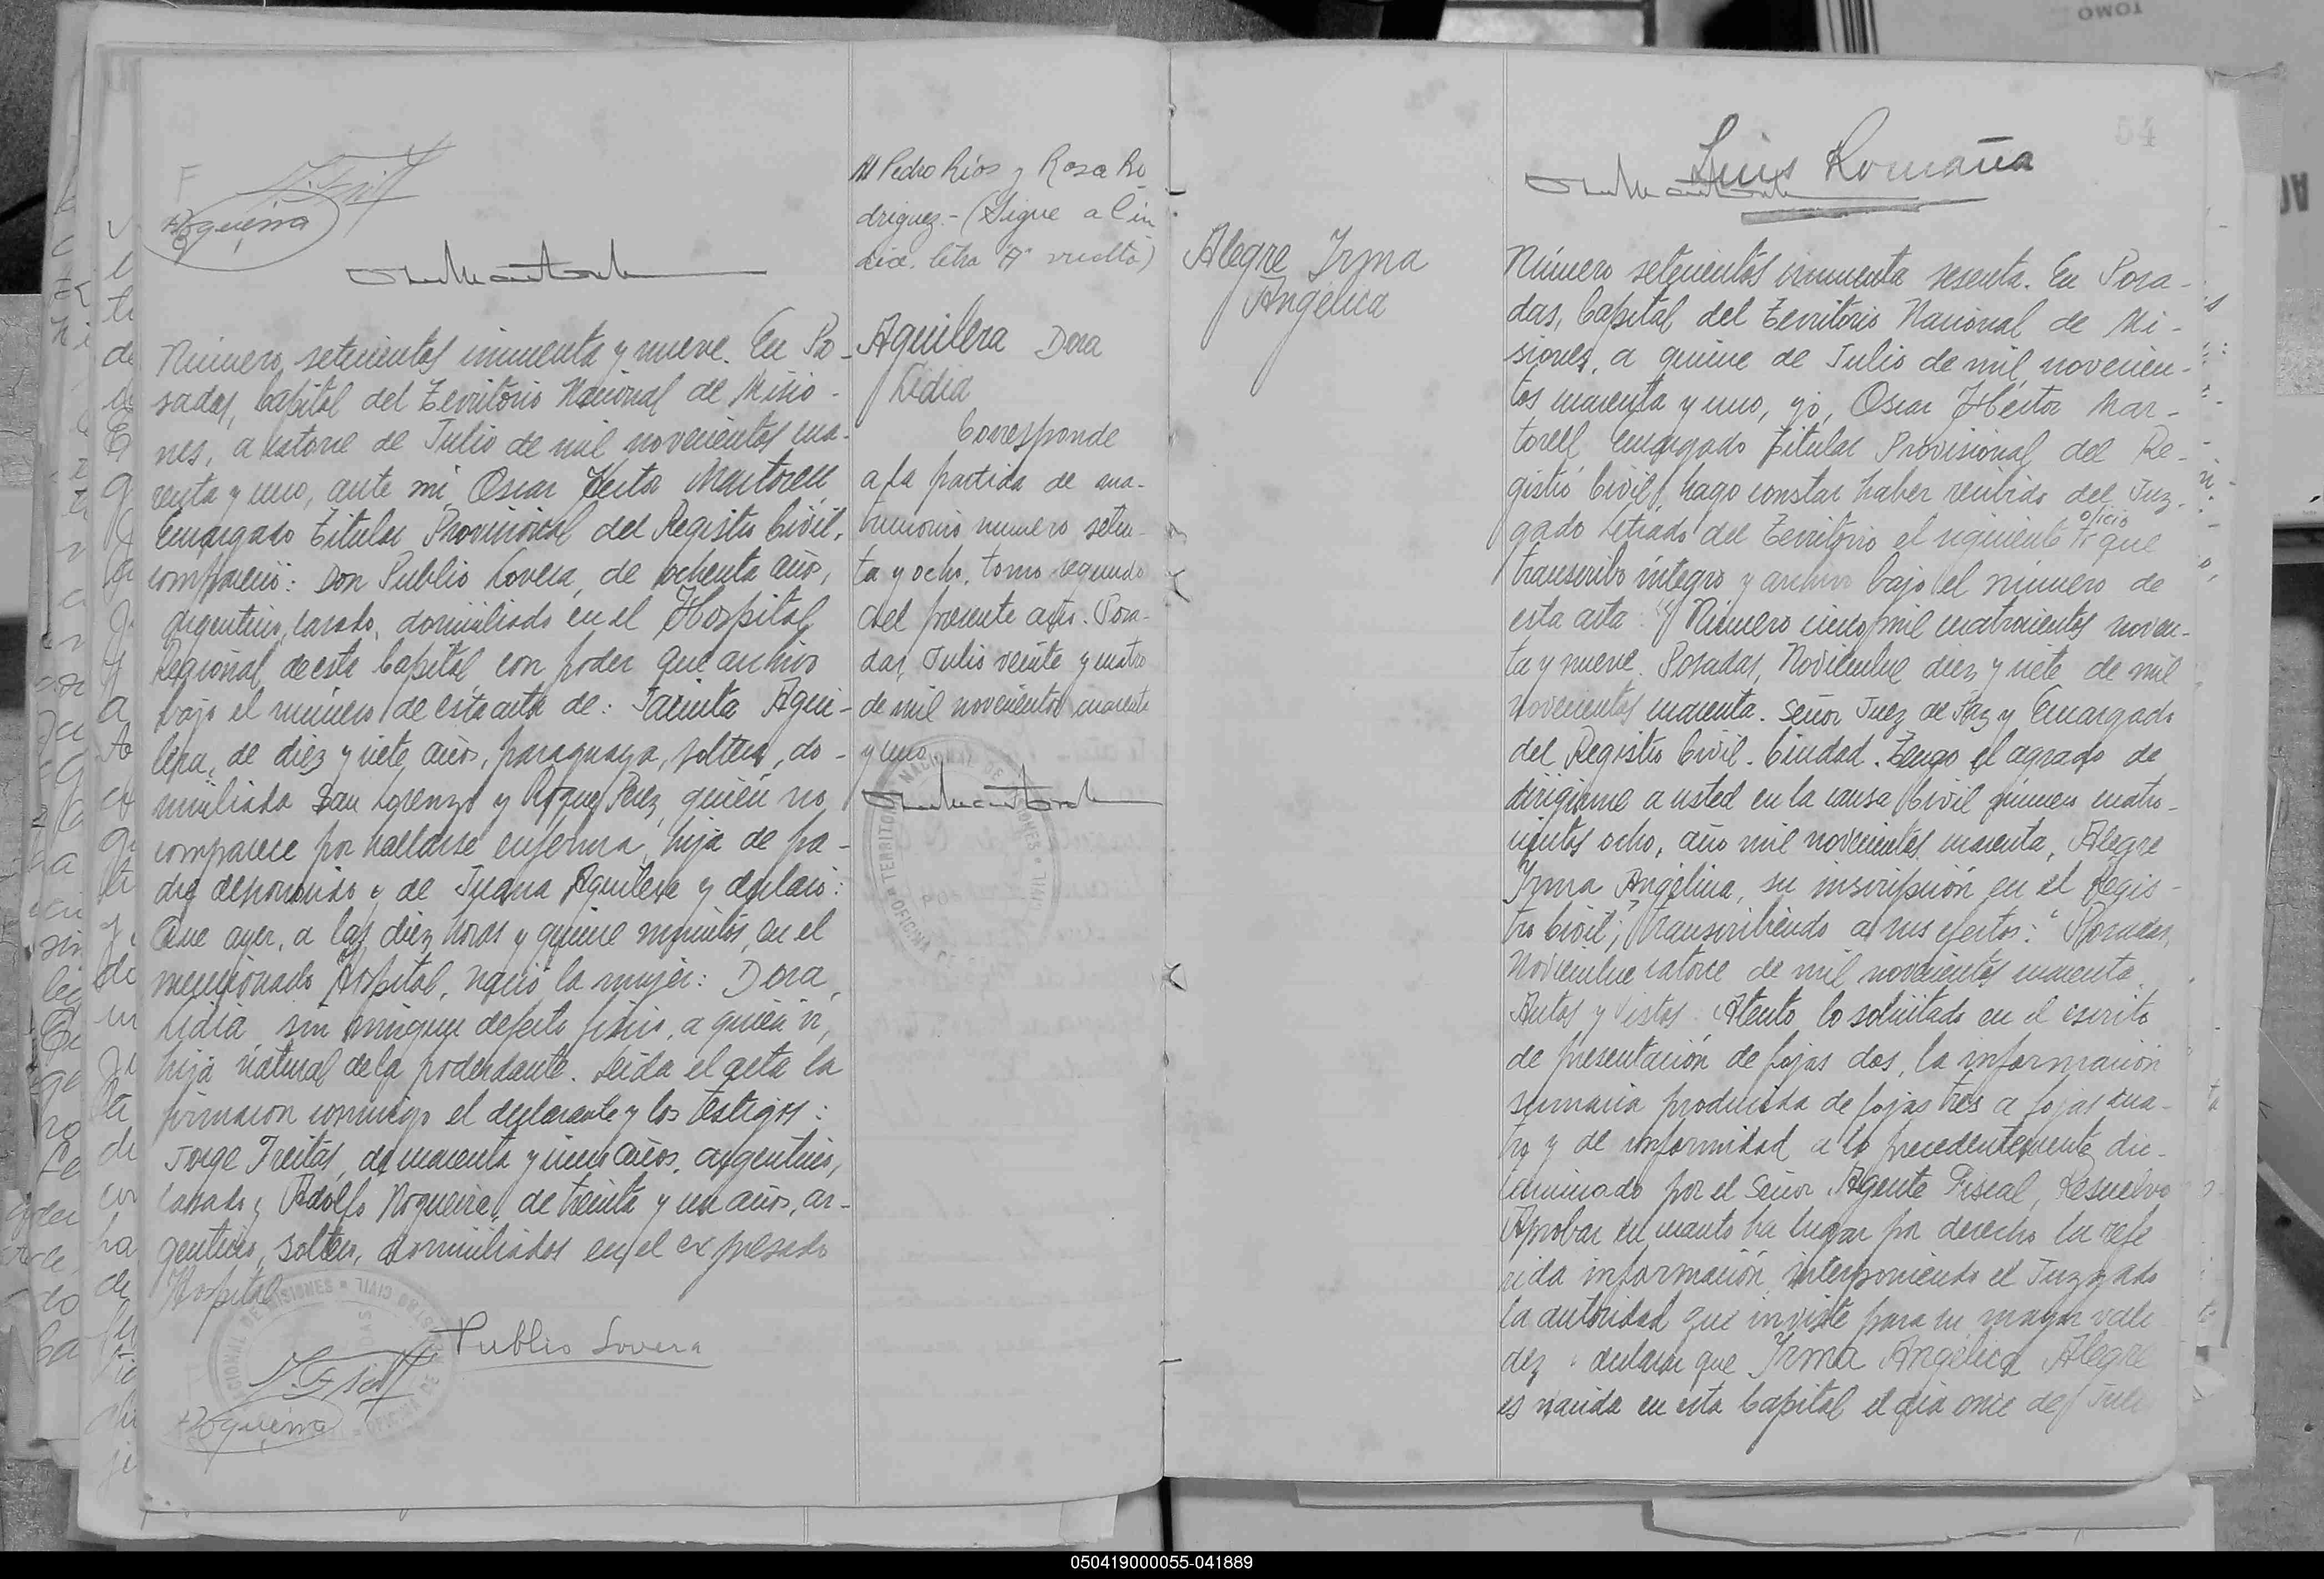 TOMO
F
J. Freit
ANogueira
Al Pedro Ríos y Rosa Ro
driguez.- (Sigue al ín
dice. letra "A" vuelta)
Número setecientos cincuenta y nueve. En Po-
sadas, Capital del Territorio Nacional de Misio-
nes, a catorce de Julio de mil novecientos cua-
renta y uno, ante mí, Oscar Héctor Martorell
Encargado Titular Provisional del Registro Civil,
compareció: Don Publio Lovera, de ochenta años,
argentino, casado, domiciliado en el Hospital
Regional de esta Capital, con poder que archivo
bajo el número de esta acta de: Jacinta Agui-
lera, de diez y siete años, paraguaya, soltera, do-
miciliada San Lorenzo y Roque Perez, quién no
comparece por hallarse enferma, hija de pa-
dre desconocido y de Juana Aguilera y declaró:
Que ayer, a las diez horas y quince minutos, en el
mencionado Hospital, nació la mujer: Dora
Lidia sin ningun defecto físico, a quién vi,
hija natural de la poderdante. Leída el acta la
firmaron conmigo el declarante y los testigos:
Jorge Freitas, de cuarenta y cinco años, argentino,
casado y Adolfo Nogueira, de treinta y un años, ar-
gentino, soltero, domiciliados en el expresado
Hospital
Publio Lovera
J. Freit
ANogueira
Aguilera Dora
Lidia
Corresponde
a la partida de ma-
trimonio numero seten-
ta y ocho, tomo segundo
del presente año. Posa-
das, Julio veinte y cuatro
de mil novecientos cuarenta
y uno
TERRITORIO NACIONAL DE MISIONES
Alegre Irma
Angélica
54
Luis Romaña
Número setecientos cincuenta sesenta. En Posa-
das, Capital del Territorio Nacional de Mi-
siones, a quince de Julio de mil novecien-
tos cuarenta y uno, yo, Oscar Héctor Mar-
torell Encargado Titular Provisional del Re-
gistro Civil, hago constar haber recibido del Juz-
gado Letrado del Territorio el siguiente oficio que
transcribo íntegro y archivo bajo el número de
esta acta: "Número cinco mil cuatrocientos noven-
ta y nueve. Posadas, Noviembre diez y siete de mil
novecientos cuarenta. Señor Juez de Paz y Encargado
del Registro Civil. Ciudad. Tengo el agrado de
dirigirme a usted en la causa Civil número cuatro-
cientos ocho, año mil novecientos cuarenta, Alegre
Irma Angélica, su inscripción en el Regis-
tro Civil", transcribiendo a sus efectos: "Posadas,
Noviembre catorce de mil novecientos cuarenta.
Autos y Vistos: Atento lo solicitado en el escrito
de presentación de fojas dos, la información
sumaria producida de fojas tres a fojas cua-
tro y de conformidad a lo precedentemente dic-
taminado por el Señor Agente Fiscal, Resuelvo
Aprobar en cuanto ha lugar por derecho la refe
rida información, interponiendo el Juzgado
la autoridad que inviste para su mayor vali
dez declarar que Irma Angélica Alegre
es nacida en esta Capital el día once de Juli
050419000055-041889